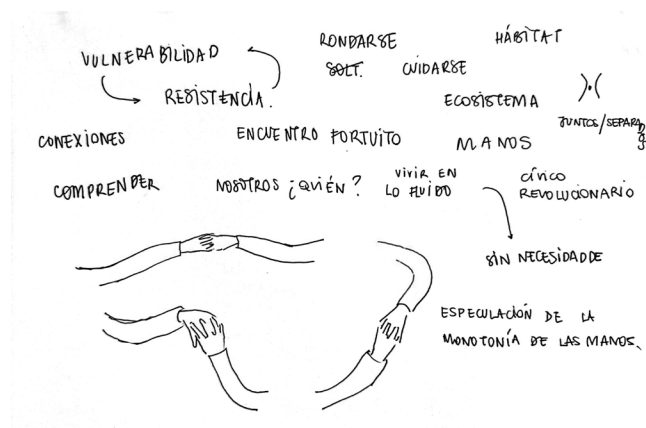 RONDARSE
HÁBITAT
VULNERABILIDAD
SOLT. CUIDARSE
RESISTENCIA.
ECOSISTEMA
JUNTOS/SEPARADOS
CONEXIONES
ENCUENTRO FORTUITO
MANOS
COMPRENDER
NOSOTROS ¿QUIÉN?
VIVIR EN
LO FLUIDO
CÍVICO
REVOLUCIONARIO
SIN NECESIDAD DE
ESPECULACIÓN DE LA
MONOTONÍA DE LAS MANOS.